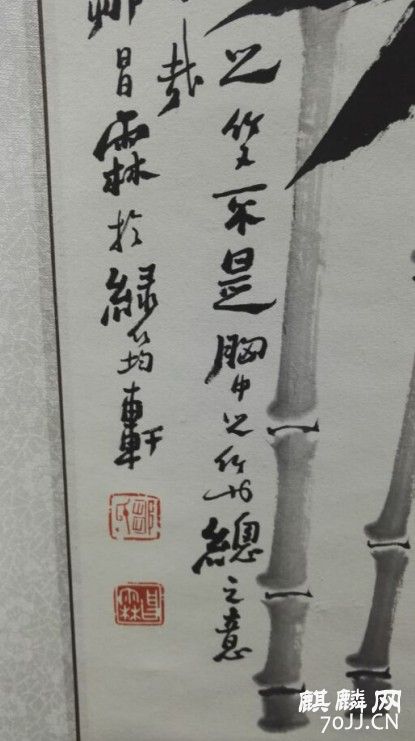 之竹又不是胸中之竹也總之意
哉
鄒昌霖於綠筠軒
鄒氏
昌霖
麒麟网
70JJ.CN